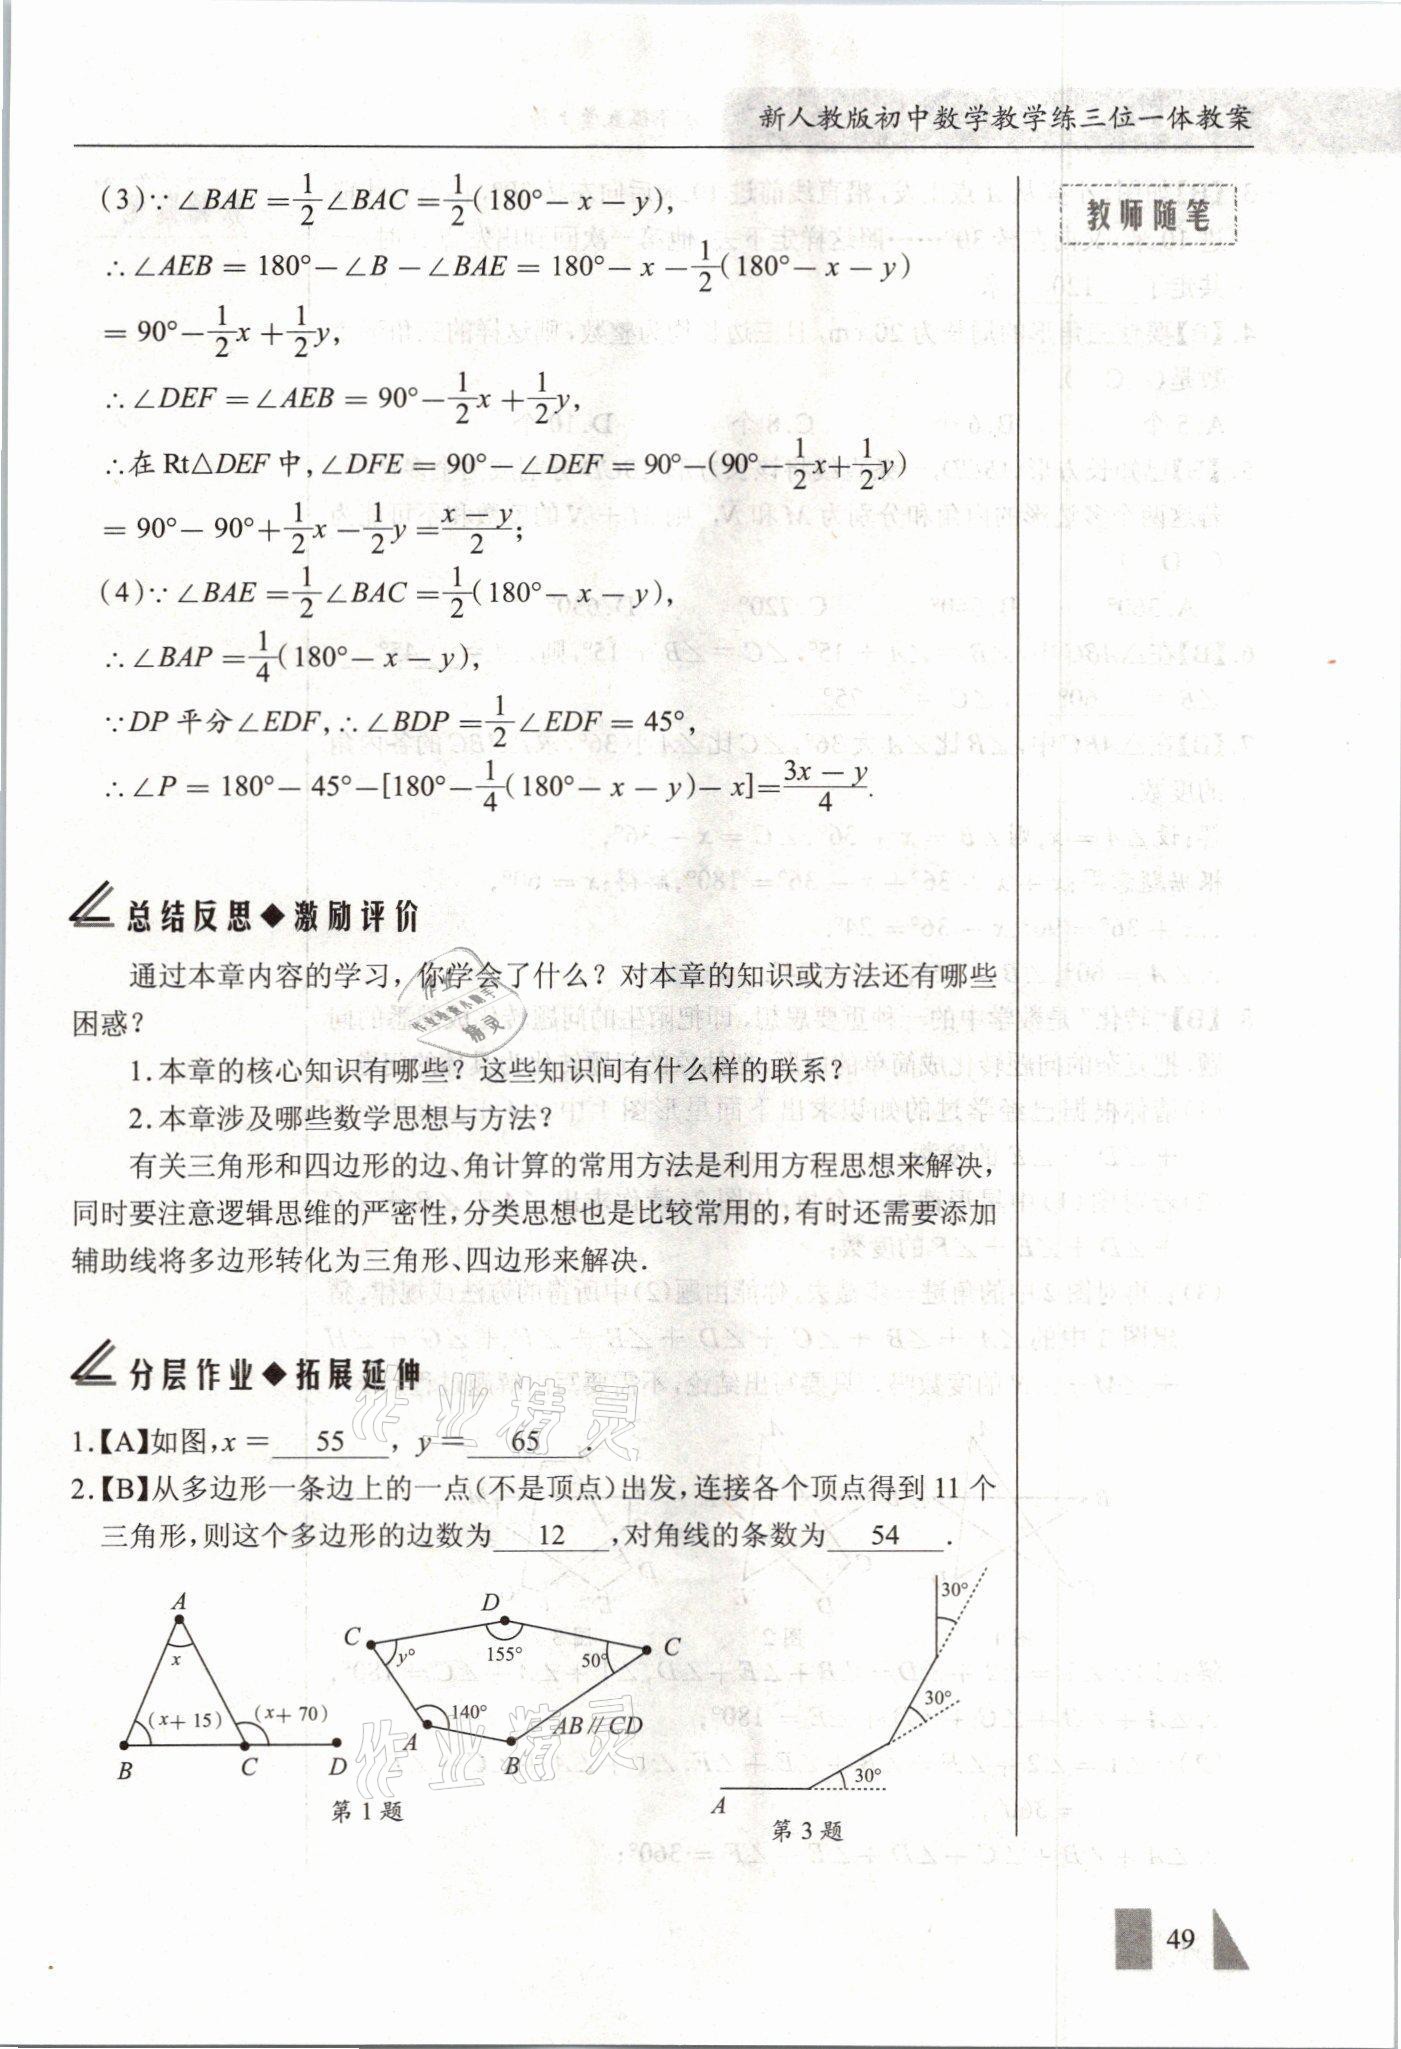 新人教版初中数学教学练三位一体教案
教师随笔
(3)∵∠BAE=1/2∠BAC=1/2(180°-x-y),
∴∠AEB=180°-∠B-∠BAE=180°-x-1/2(180°-x-y)
=90°-1/2x+1/2y,
∴∠DEF=∠AEB=90°-1/2x+1/2y,
∴在Rt△DEF中,∠DFE=90°-∠DEF=90°-(90°-1/2x+1/2y)
=90°-90°+1/2x-1/2y=(x-y)/2;
(4)∵∠BAE=1/2∠BAC=1/2(180°-x-y),
∴∠BAP=1/4(180°-x-y),
∵DP平分∠EDF,∴∠BDP=1/2∠EDF=45°,
∴∠P=180°-45°-[180°-1/4(180°-x-y)-x]=(3x-y)/4.
总结反思◆激励评价
通过本章内容的学习，你学会了什么？对本章的知识或方法还有哪些
困惑？
1.本章的核心知识有哪些？这些知识间有什么样的联系？
2.本章涉及哪些数学思想与方法？
有关三角形和四边形的边、角计算的常用方法是利用方程思想来解决，
同时要注意逻辑思维的严密性，分类思想也是比较常用的，有时还需要添加
辅助线将多边形转化为三角形、四边形来解决.
分层作业◆拓展延伸
1.【A】如图，x= 55 ，y= 65 .
2.【B】从多边形一条边上的一点(不是顶点)出发，连接各个顶点得到11个
三角形，则这个多边形的边数为 12 ，对角线的条数为 54 .
A
x
(x+15)
(x+70)
B
C
D
D
C
y°
155°
50°
C
140°
A
B
AB∥CD
第1题
30°
30°
30°
A
第3题
49
作业精灵
作业精灵